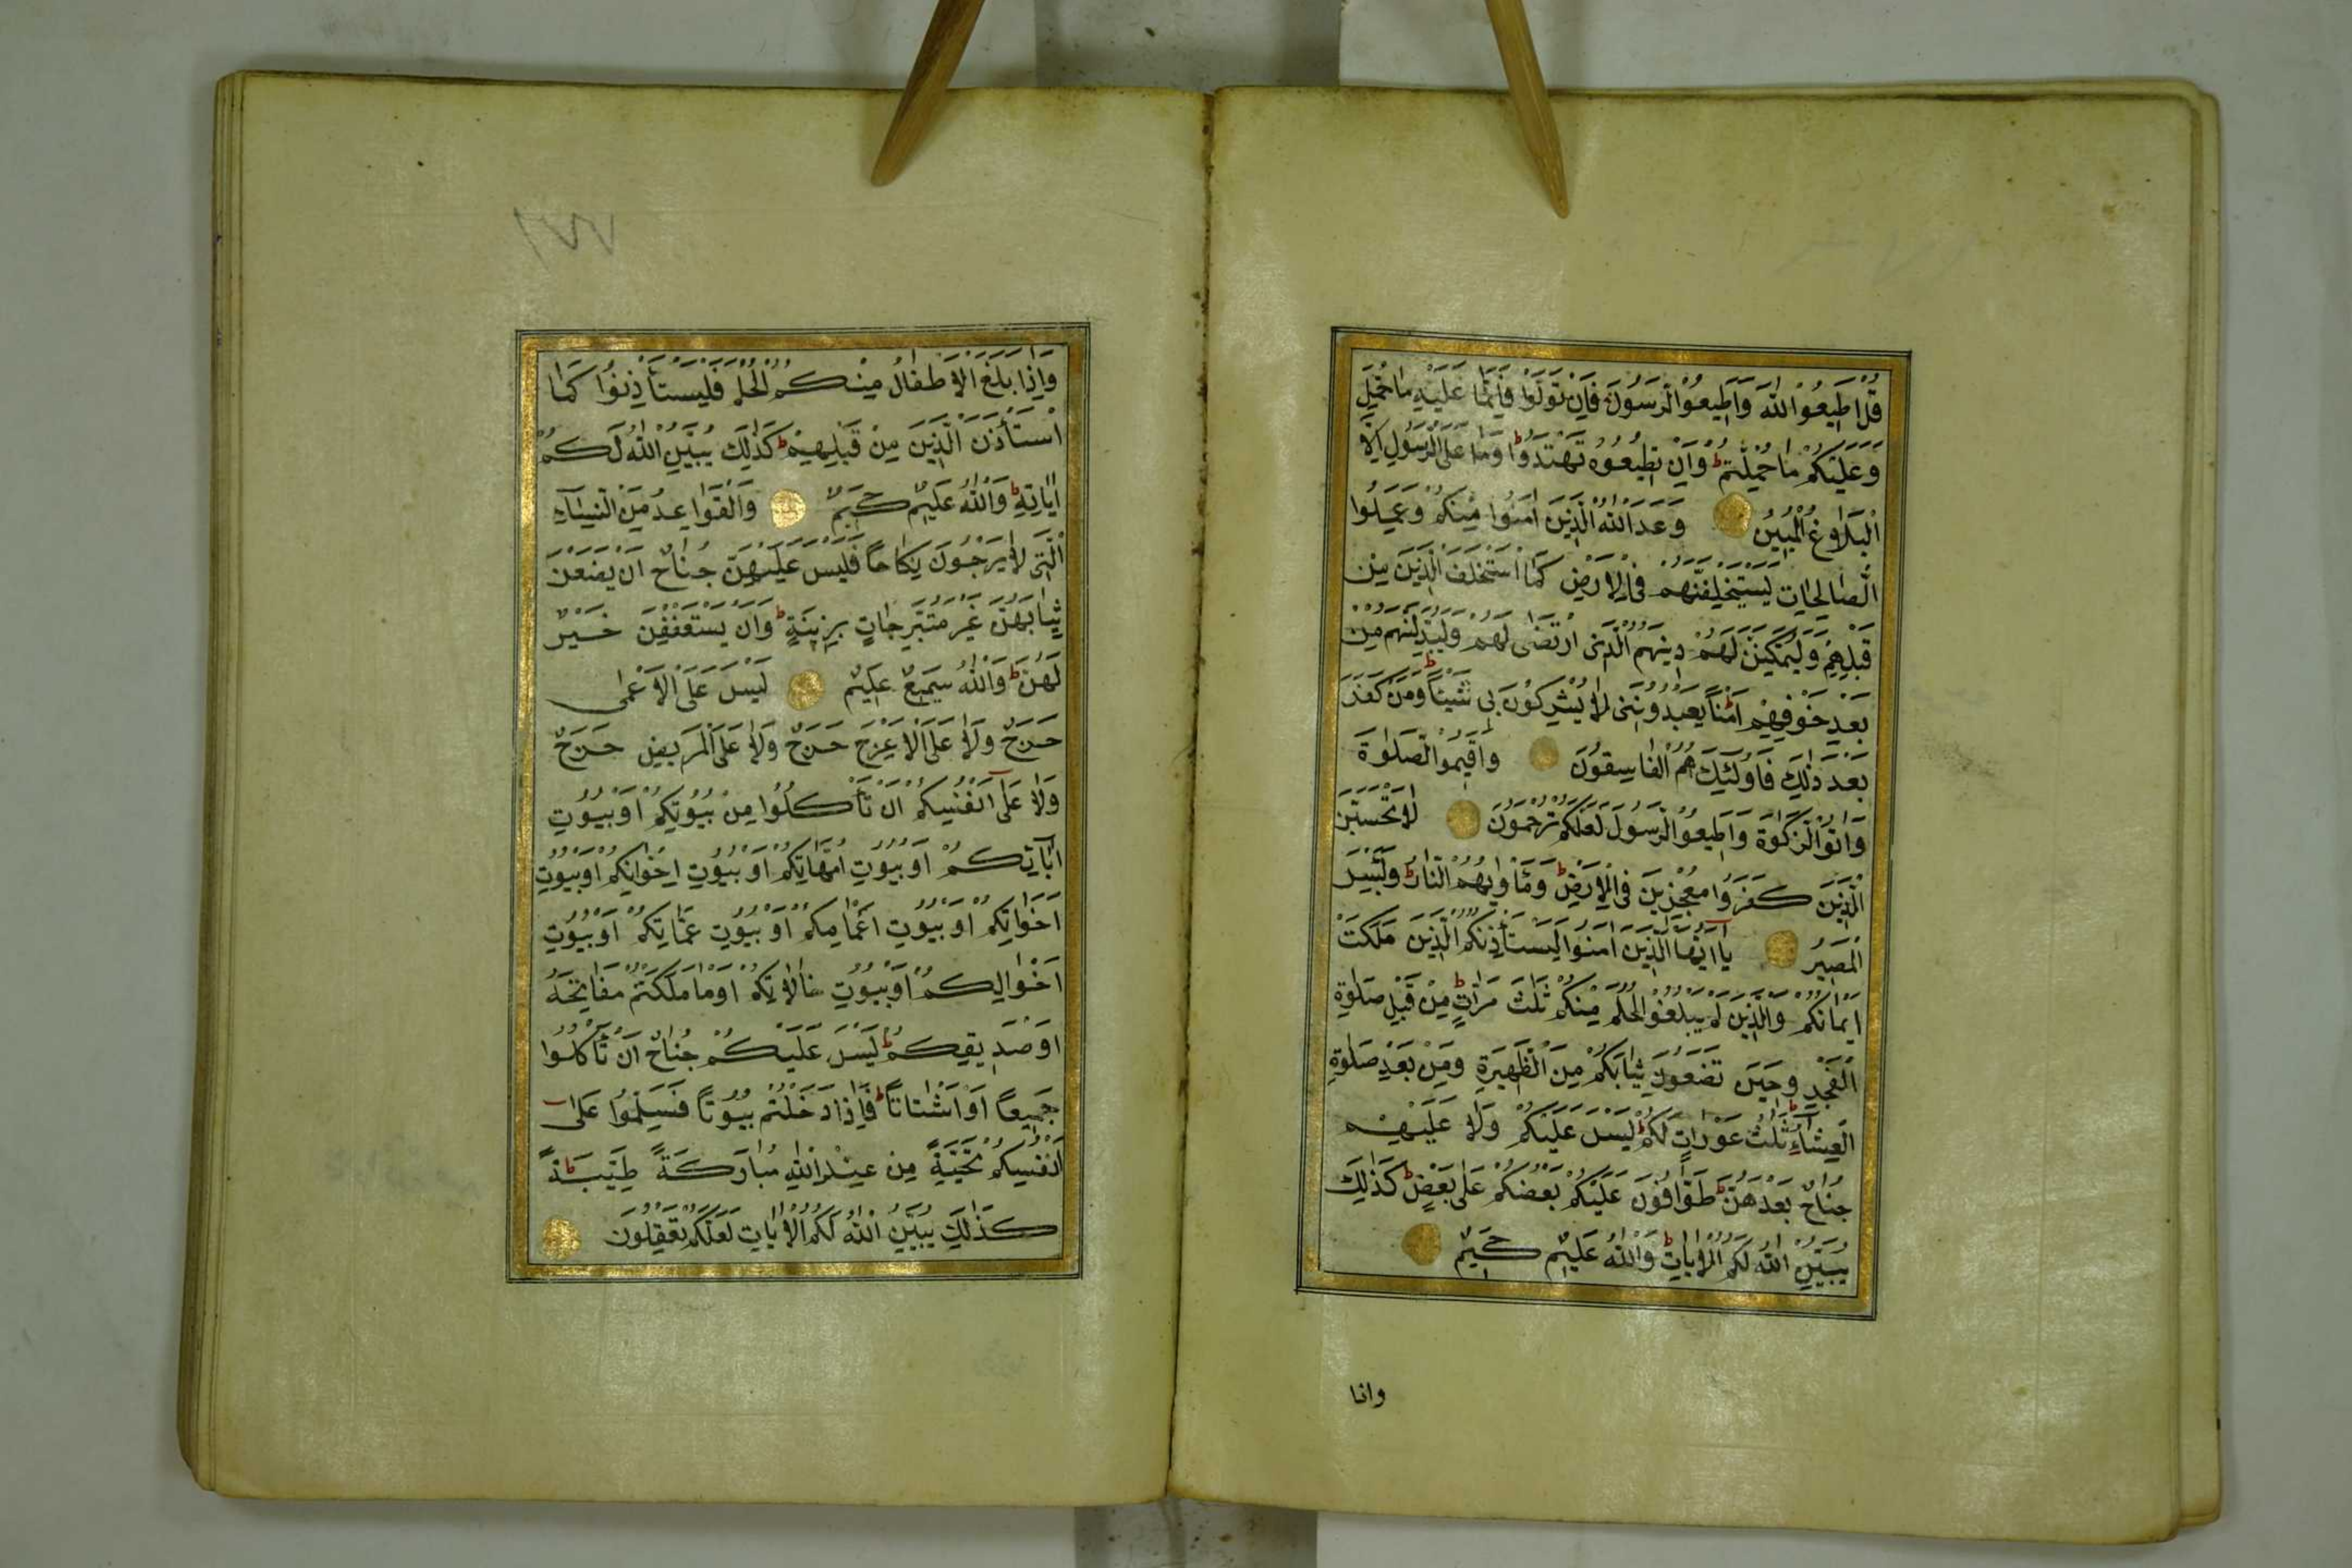 قُلْ اَطِيعُوا اللّٰهَ وَاَطِيعُوا الرَّسُولَ فَاِنْ تَوَلَّوْا فَاِنَّمَا عَلَيْهِ مَا حُمِّلَ
وَعَلَيْكُمْ مَا حُمِّلْتُمْ ط وَاِنْ تُطِيعُوهُ تَهْتَدُوا ط وَمَا عَلَى الرَّسُولِ اِلَّا
الْبَلَاغُ الْمُبِينُ وَعَدَ اللّٰهُ الَّذِينَ اٰمَنُوا مِنْكُمْ وَعَمِلُوا
الصَّالِحَاتِ لَيَسْتَخْلِفَنَّهُمْ فِى الْاَرْضِ كَمَا اسْتَخْلَفَ الَّذِينَ مِنْ
قَبْلِهِمْ وَلَيُمَكِّنَنَّ لَهُمْ دِينَهُمُ الَّذِى ارْتَضٰى لَهُمْ وَلَيُبَدِّلَنَّهُمْ مِنْ
بَعْدِ خَوْفِهِمْ اَمْنًا يَعْبُدُونَنِى لَا يُشْرِكُونَ بِى شَيْئًا ط وَمَنْ كَفَرَ
بَعْدَ ذٰلِكَ فَاُولٰئِكَ هُمُ الْفَاسِقُونَ وَاَقِيمُوا الصَّلٰوةَ
وَاٰتُوا الزَّكٰوةَ وَاَطِيعُوا الرَّسُولَ لَعَلَّكُمْ تُرْحَمُونَ لَا تَحْسَبَنَّ
الَّذِينَ كَفَرُوا مُعْجِزِينَ فِى الْاَرْضِ ط وَمَأْوٰيهُمُ النَّارُ ط وَلَبِئْسَ
الْمَصِيرُ يَا اَيُّهَا الَّذِينَ اٰمَنُوا لِيَسْتَأْذِنْكُمُ الَّذِينَ مَلَكَتْ
اَيْمَانُكُمْ وَالَّذِينَ لَمْ يَبْلُغُوا الْحُلُمَ مِنْكُمْ ثَلٰثَ مَرَّاتٍ ط مِنْ قَبْلِ صَلٰوةِ
الْفَجْرِ وَحِينَ تَضَعُونَ ثِيَابَكُمْ مِنَ الظَّهِيرَةِ وَمِنْ بَعْدِ صَلٰوةِ
الْعِشَاءِ ط ثَلٰثُ عَوْرَاتٍ لَكُمْ ط لَيْسَ عَلَيْكُمْ وَلَا عَلَيْهِمْ
جُنَاحٌ بَعْدَهُنَّ ط طَوَّافُونَ عَلَيْكُمْ بَعْضُكُمْ عَلٰى بَعْضٍ ط كَذٰلِكَ
يُبَيِّنُ اللّٰهُ لَكُمُ الْاٰيَاتِ ط وَاللّٰهُ عَلِيمٌ حَكِيمٌ
واذا
وَاِذَا بَلَغَ الْاَطْفَالُ مِنْكُمُ الْحُلُمَ فَلْيَسْتَأْذِنُوا كَمَا
اسْتَأْذَنَ الَّذِينَ مِنْ قَبْلِهِمْ ط كَذٰلِكَ يُبَيِّنُ اللّٰهُ لَكُمْ
اٰيَاتِهِ ط وَاللّٰهُ عَلِيمٌ حَكِيمٌ وَالْقَوَاعِدُ مِنَ النِّسَاءِ
الّٰتِى لَا يَرْجُونَ نِكَاحًا فَلَيْسَ عَلَيْهِنَّ جُنَاحٌ اَنْ يَضَعْنَ
ثِيَابَهُنَّ غَيْرَ مُتَبَرِّجَاتٍ بِزِينَةٍ ط وَاَنْ يَسْتَعْفِفْنَ خَيْرٌ
لَهُنَّ ط وَاللّٰهُ سَمِيعٌ عَلِيمٌ لَيْسَ عَلَى الْاَعْمٰى
حَرَجٌ وَلَا عَلَى الْاَعْرَجِ حَرَجٌ وَلَا عَلَى الْمَرِيضِ حَرَجٌ
وَلَا عَلٰى اَنْفُسِكُمْ اَنْ تَأْكُلُوا مِنْ بُيُوتِكُمْ اَوْ بُيُوتِ
اٰبَائِكُمْ اَوْ بُيُوتِ اُمَّهَاتِكُمْ اَوْ بُيُوتِ اِخْوَانِكُمْ اَوْ بُيُوتِ
اَخَوَاتِكُمْ اَوْ بُيُوتِ اَعْمَامِكُمْ اَوْ بُيُوتِ عَمَّاتِكُمْ اَوْ بُيُوتِ
اَخْوَالِكُمْ اَوْ بُيُوتِ خَالَاتِكُمْ اَوْ مَا مَلَكْتُمْ مَفَاتِحَهُ
اَوْ صَدِيقِكُمْ ط لَيْسَ عَلَيْكُمْ جُنَاحٌ اَنْ تَأْكُلُوا
جَمِيعًا اَوْ اَشْتَاتًا ط فَاِذَا دَخَلْتُمْ بُيُوتًا فَسَلِّمُوا عَلٰى
اَنْفُسِكُمْ تَحِيَّةً مِنْ عِنْدِ اللّٰهِ مُبَارَكَةً طَيِّبَةً ط
كَذٰلِكَ يُبَيِّنُ اللّٰهُ لَكُمُ الْاٰيَاتِ لَعَلَّكُمْ تَعْقِلُونَ